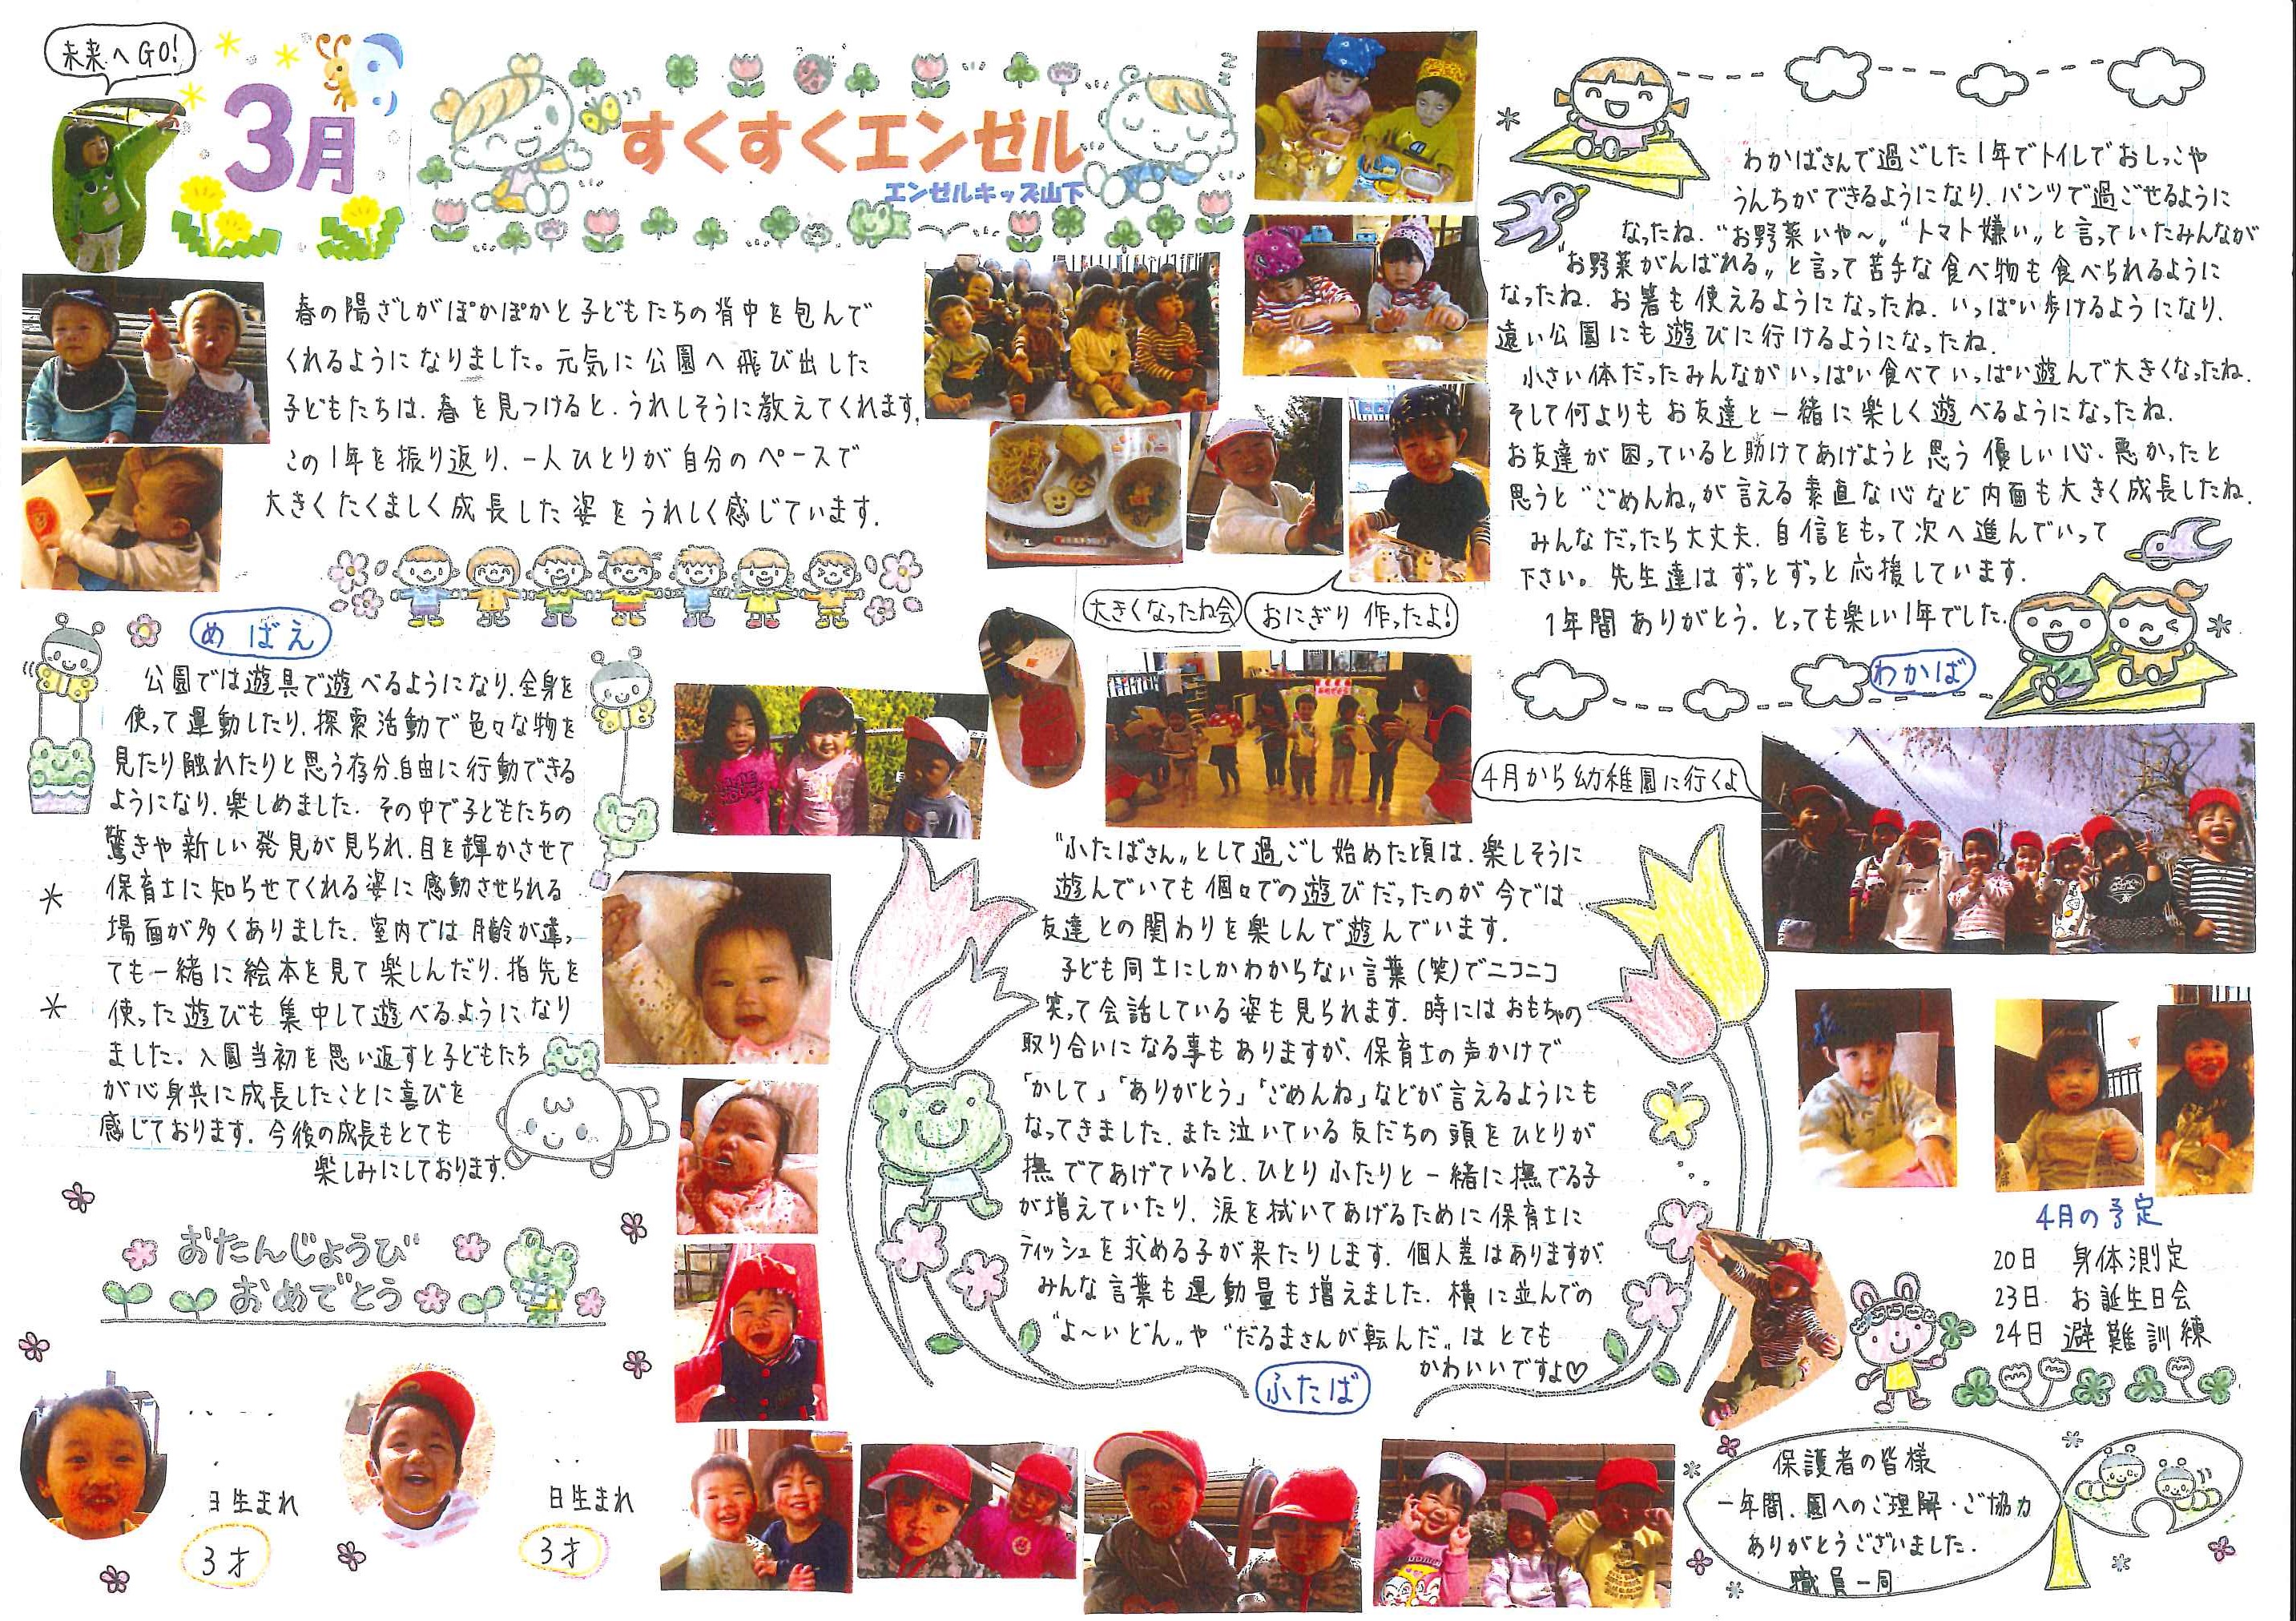 未来へGO!
3月
すくすくエンゼル
エンゼルキッズ山下
春の陽ざしがぽかぽかと子どもたちの背中を包んで
くれるようになりました。元気に公園へ飛び出した
子どもたちは、春を見つけると、うれしそうに教えてくれます。
この1年を振り返り、一人ひとりが自分のペースで
大きくたくましく成長した姿をうれしく感じています。
めばえ
公園では遊具で遊べるようになり、全身を
使って運動したり、探索活動で色々な物を
見たり触れたりと思う存分、自由に行動できる
ようになり、楽しめました。その中で子どもたちの
驚きや新しい発見が見られ、目を輝かさせて
保育士に知らせてくれる姿に感動させられる
場面が多くありました。室内では月齢が違っ
ても一緒に絵本を見て楽しんだり、指先を
使った遊びも集中して遊べるようになり
ました。入園当初を思い返すと子どもたち
が心身共に成長したことに喜びを
感じております。今後の成長もとても
楽しみにしております。
おたんじょうび
おめでとう
日生まれ
3才
日生まれ
3才
大きくなったね会
おにぎり作ったよ!
"ふたばさん"として過ごし始めた頃は、楽しそうに
遊んでいても個々での遊びだったのが今では
友達との関わりを楽しんで遊んでいます。
子ども同士にしかわからない言葉(笑)でニコニコ
笑って会話している姿も見られます。時にはおもちゃの
取り合いになる事もありますが、保育士の声かけで
「かして」「ありがとう」「ごめんね」などが言えるようにも
なってきました。また泣いている友だちの頭をひとりが
撫でてあげていると、ひとりふたりと一緒に撫でる子
が増えていたり、涙を拭いてあげるために保育士に
ティッシュを求める子が来たりします。個人差はありますが
みんな言葉も運動量も増えました。横に並んでの
"よ〜いどん"や"だるまさんが転んだ"はとても
かわいいですよ♡
ふたば
わかばさんで過ごした1年でトイレでおしっこや
うんちができるようになり、パンツで過ごせるように
なったね。"お野菜いや〜""トマト嫌い"と言っていたみんなが
"お野菜がんばれる"と言って苦手な食べ物も食べられるように
なったね。お箸も使えるようになったね。いっぱい歩けるようになり、
遠い公園にも遊びに行けるようになったね。
小さい体だったみんながいっぱい食べていっぱい遊んで大きくなったね。
そして何よりもお友達と一緒に楽しく遊べるようになったね。
お友達が困っていると助けてあげようと思う優しい心、悪かったと
思うと"ごめんね"が言える素直な心など内面も大きく成長したね。
みんなだったら大丈夫。自信をもって次へ進んでいって
下さい。先生達はずっとずっと応援しています。
1年間ありがとう。とっても楽しい1年でした。
わかば
4月から幼稚園に行くよ
4月の予定
20日 身体測定
23日 お誕生日会
24日 避難訓練
保護者の皆様
一年間、園へのご理解・ご協力
ありがとうございました。
職員一同